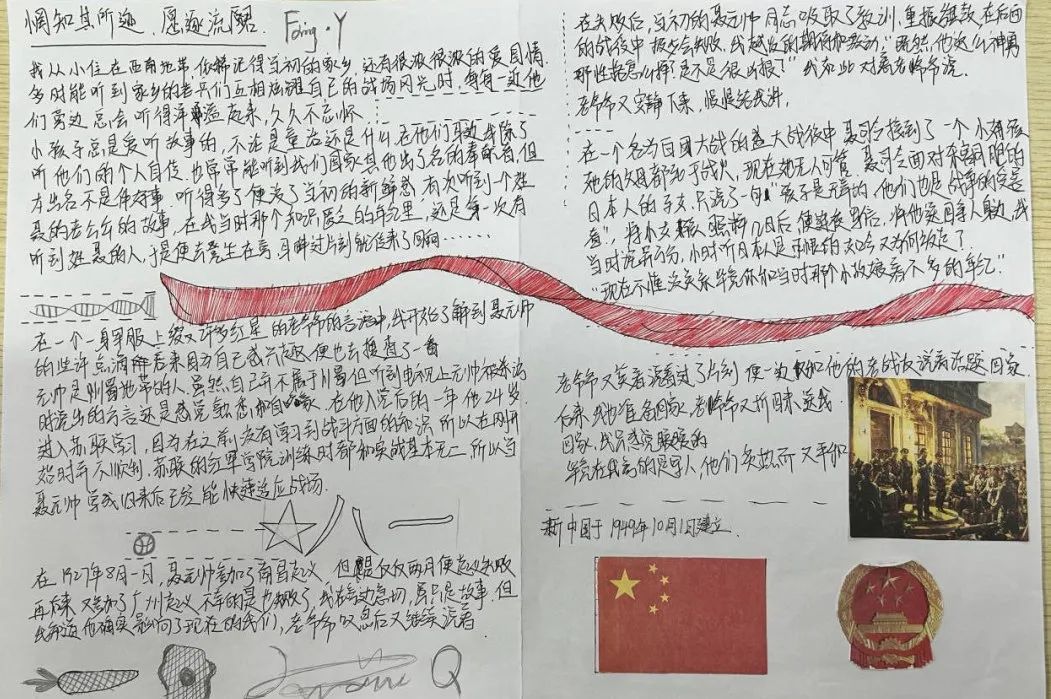 惆知其所逝,愿逐流照. Fding·Y
我从小住在西南地带,依稀记得当初的家乡 还有很浓很浓的爱国情.
多时能听到家乡的老兵们互相炫耀自己的战场风光时,每每一近他
们旁边 总会听得洋洋溢起来,久久不忘怀
小孩子总是爱听故事的,不论是童话还是什么 在他们耳边 我除了
听他们的个人自传 也常常能听到我们国家其他出了名的奉献者,但
太出名不是件好事 听得多了便没了当初的新鲜感 有次听到一个姓
聂的老爷爷的故事,在我当时那个知识匮乏的年纪里,还是第一次有
听到姓聂的人,于是便去 坐在旁,耳畔过片刻就传来了回响······
在一个一身军服上缀了许多红星的老爷爷的言语中,我开始了解到聂元帅
的些许点滴 后来因为自己感兴趣 便也去搜查了一番
元帅是川蜀地带的人 虽然自己并不属于川蜀 但听到电视上元帅 讲话
时流出的方言还是感觉敏悉如自家. 在他入党后的一年 他24岁
进入苏联学习,因为在之前没有学习到战斗方面的知识 所以在刚开
始时并不顺利,苏联的红军学院 训练时都和实战基本无二,所以当
聂元帅学成归来后已经能快速适应战场.
八一
在1927年8月一日,聂元帅参加了南昌起义 但 仅仅两月便起义失败
再后来 又参加了广州起义 不幸的是也失败了,我在旁边急切,虽只是故事 但
我知道他确实影响了现在的我们,老爷爷叹息后又继续说着
Q
在失败后,当初的聂元帅同志吸取了教训,重振继鼓,在后面
的战役中 极少会失败,我越发的期待和激动,"既然他这么神勇
那性格怎么样?是不是很凶狠了"我如此对着老爷爷说.
老爷爷又安静下来,慢慢给我讲.
在一个名为百团大战的盛大战役中 聂司令接到了一个小女孩
她的父母都死于战火,现在她无人可管 聂司令面对 的
日本人的子女,只说了一句"孩子是无辜的,他们也是战争的受害
者",将小女孩 照料几日后 便 信,将他送回亲人身边,我
当时说 ,小时听日本人是可恨的 那么又为何放走了.
"现在不懂没关系 毕竟你和当时那个小姑娘差不多的年纪"
老爷爷又笑着说 过了片刻 便一边 和他的老战友说着话题 回家
后来,我也准备回家 老爷爷又折回来送我
回家,我只感觉暖暖的
毕竟在我旁的是军人,他们 又平和
新中国于1949年10月1日建立.